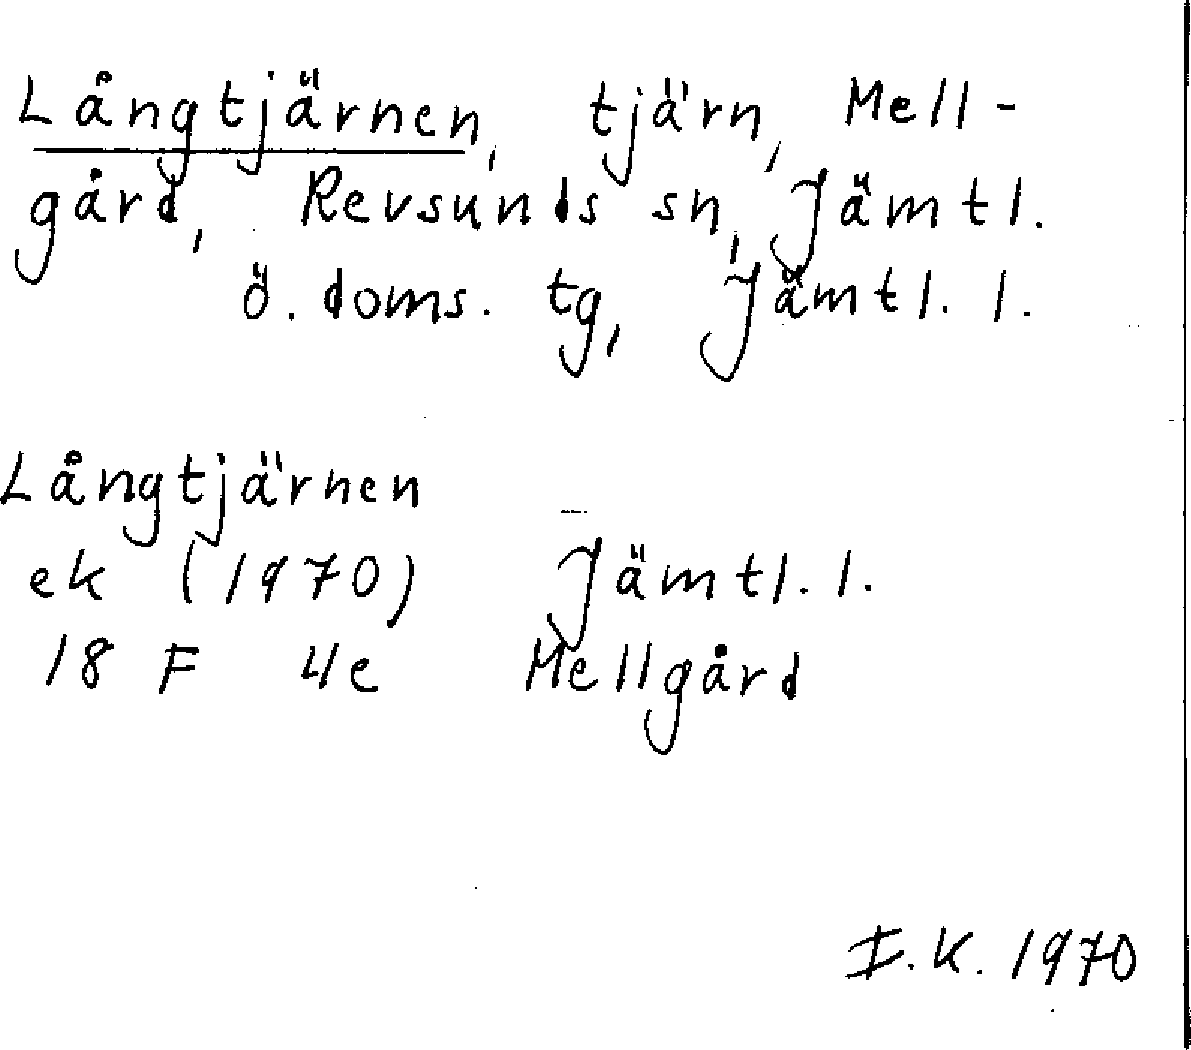 Långtjärnen, tjärn, Mell-
gård, Revsunds sn, Jämtl.
ö. doms. tg, Jämtl. l.
Långtjärnen
ek (1970) Jämtl. l.
18 F 4e Mellgård
I.K. 1970